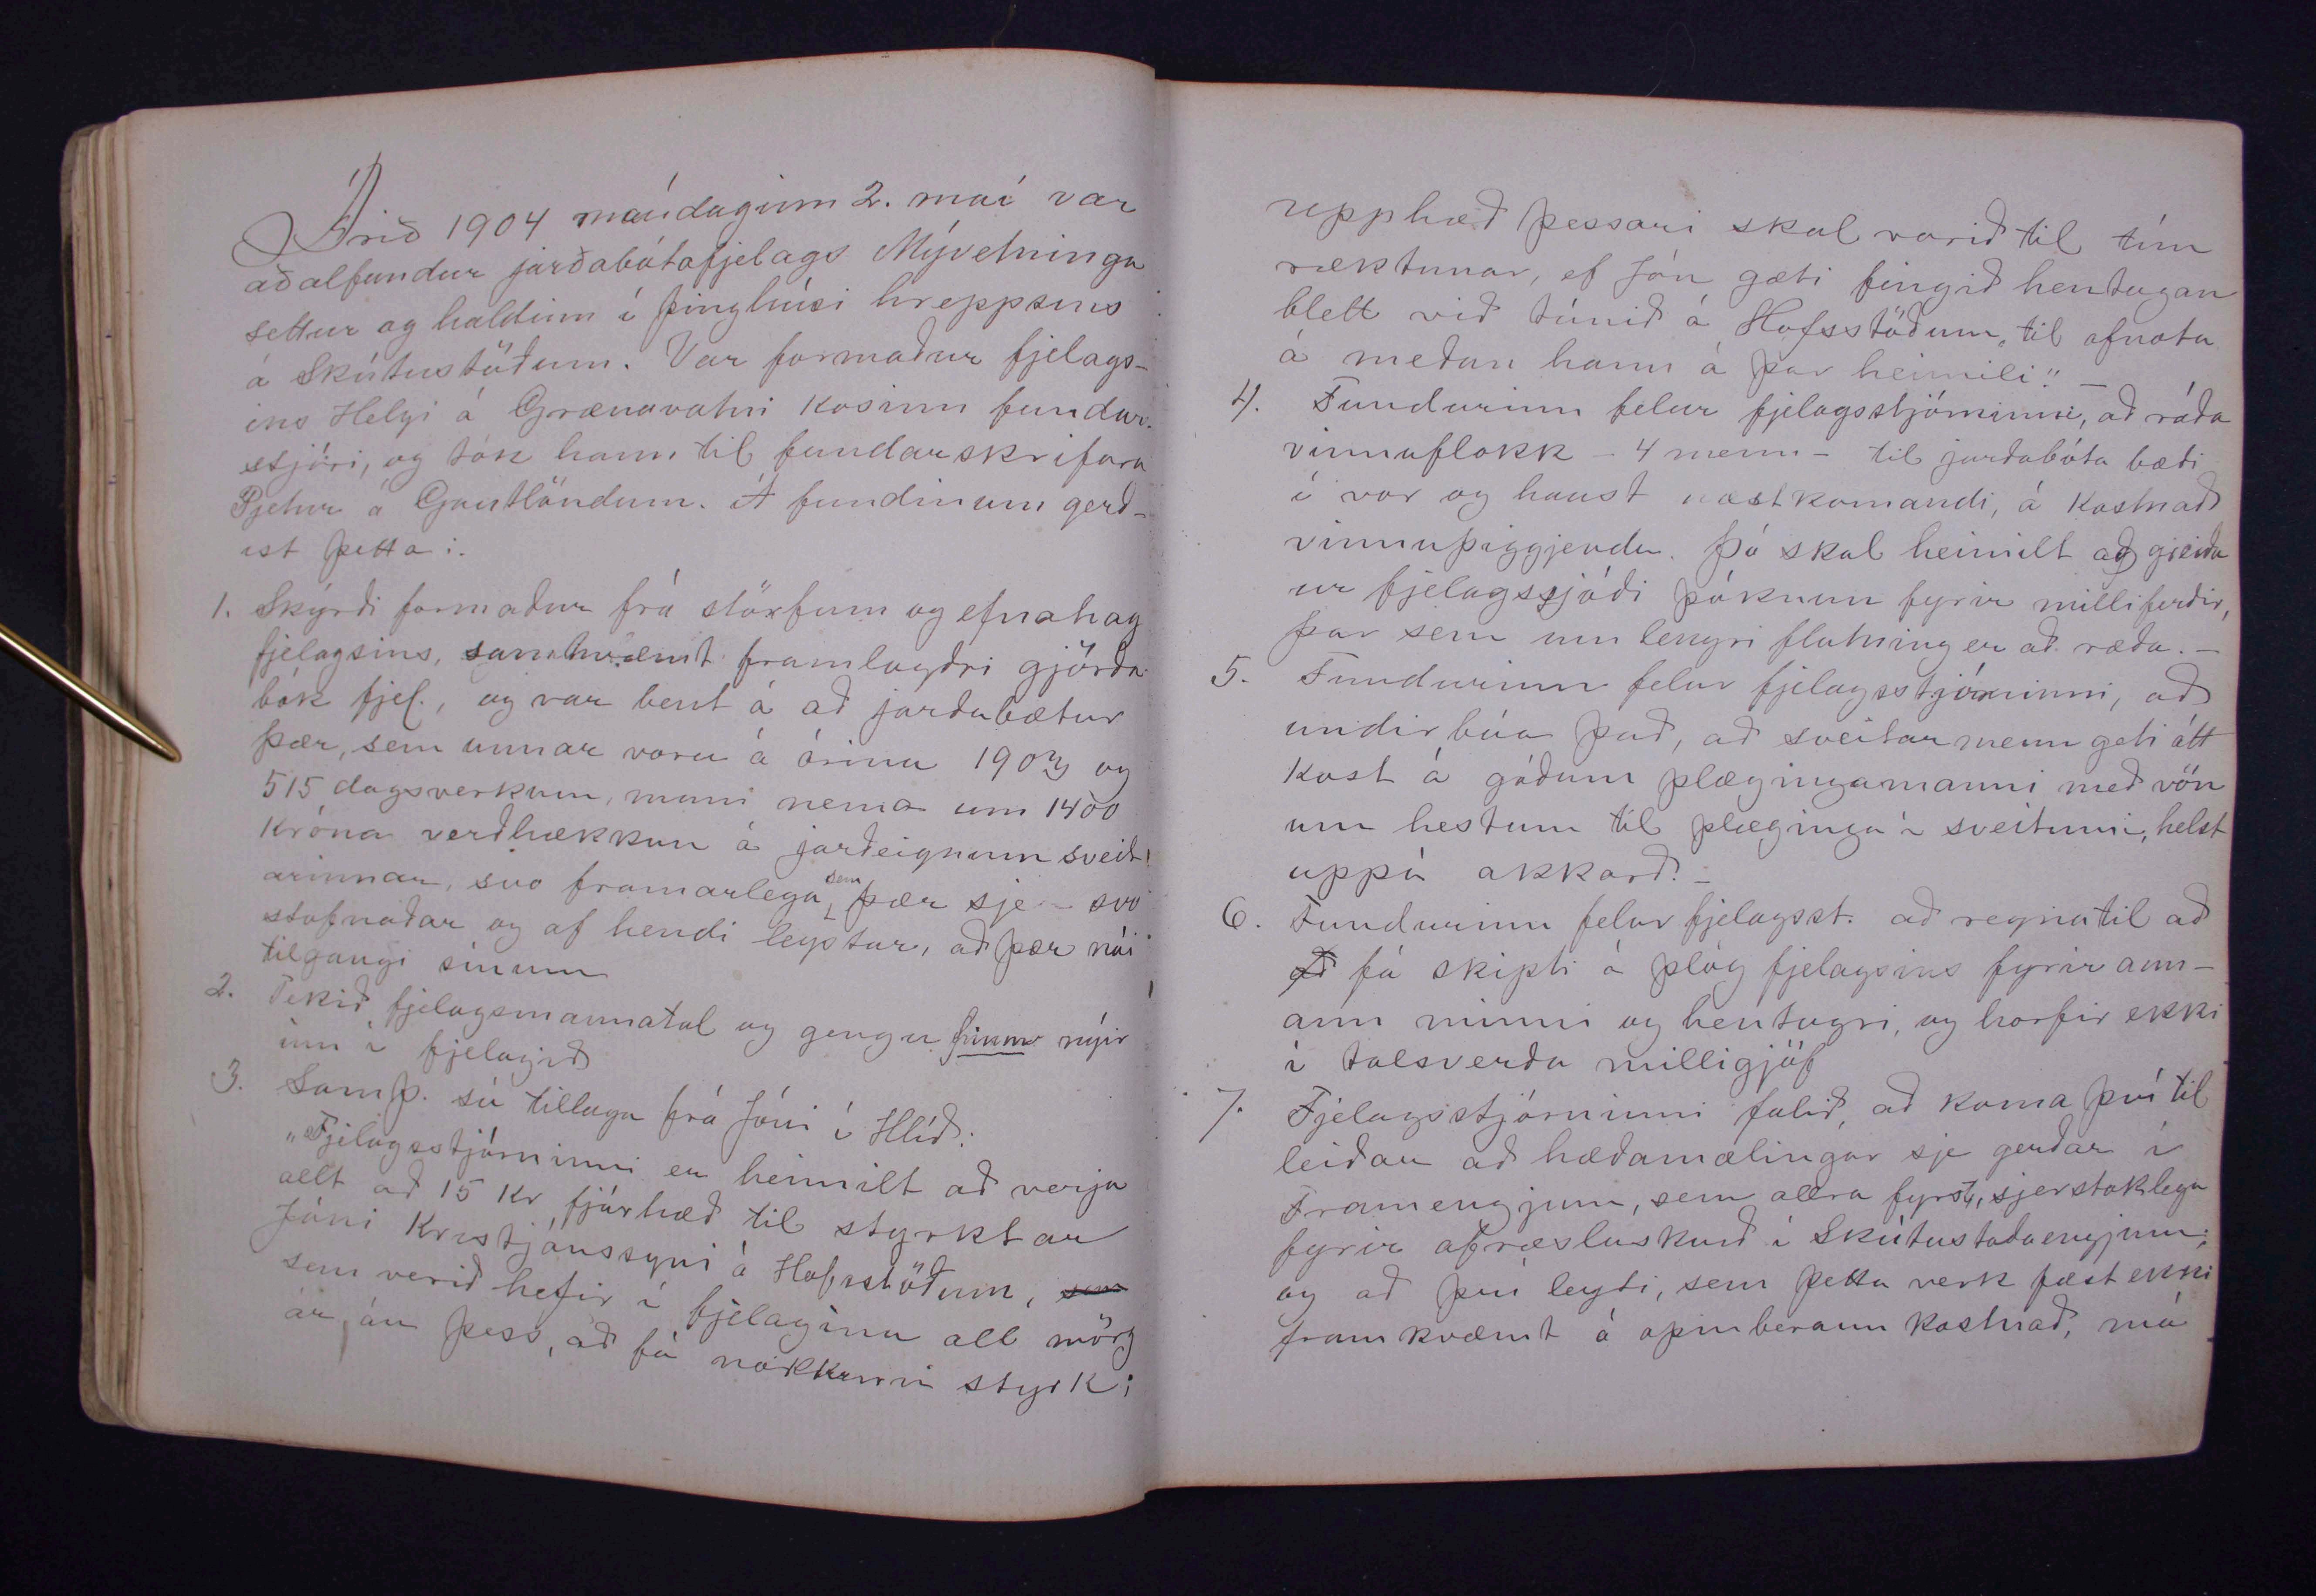 Árið 1904 mánudaginn 2. maí var
aðalfundur jarðabótafjelags Mývetninga
settur og haldinn í þinghúsi hreppsins
á Skútustöðum. Var formaður fjelags-
ins Helgi á Grænavatni kosinn fundar-
stjóri, og tók hann til fundarskrifara
Pjetur á Gautlöndum. Á fundinum gerð-
ist þetta:
1. Skýrði formaður frá störfum og efnahag
fjelagsins, samkvæmt framlagðri gjörða-
bók fjel., og var bent á að jarðabætur
þær, sem unnar voru á árinu 1903 og
515 dagsverkum, muni nema um 1400
króna verðhækkun á jarðeignum sveit-
arinnar, svo framarlega sem þær sje svo
stofnaðar og af hendi leystar, að þær nái
tilgangi sínum
2. Tekið fjelagsmannatal og gengu fimm nýir
inn í fjelagið
3. Samþ. sú tillaga frá Jóni í Hlíð:
„Fjelagsstjórninni er heimilt að verja
allt að 15 kr fjárhæð til styrktar
Jóni Kristjánssyni á Hofsstöðum, sem
sem verið hefir í fjelaginu all mörg
ár, án þess, að fá nokkurn styrk;
upphæð þessari skal varið til tún
ræktunar, ef Jón gæti fengið hentugan
blett við túnið á Hofsstöðum, til afnota
á meðan hann á þar heimili." –
4. Fundurinn felur fjelagsstjórninni, að ráða
vinnuflokk – 4 menn – til jarðabóta bæði
í vor og haust næstkomandi, á kostnað
vinnuþiggjenda. Þó skal heimilt að greiða
ur fjelagssjóði þóknun fyrir milliferðir,
þar sem um lengri flutning er að ræða. –
5. Fundurinn felur fjelagsstjórninni, að
undirbúa það, að sveitarmenn geti átt
kost á góðum plægingamanni með vön
um hestum til plæginga í sveitinni, helst
uppá akkorð. –
6. Fundurinn felur fjelagsst. að reyna til að
að fá skipti á plóg fjelagsins fyrir ann-
ann minni og hentugri, og horfir ekki
í talsverða milligjöf
7. Fjelagsstjórninni falið, að koma því til
leiðar að hæðamælingar sje gerðar í
Framengjum, sem allra fyrst, sjerstaklega
fyrir afræsluskurð í Skútustaðaengjum;
og að því leyti, sem þetta verk fæst ekki
framkvæmt á opinberann kostnað, má